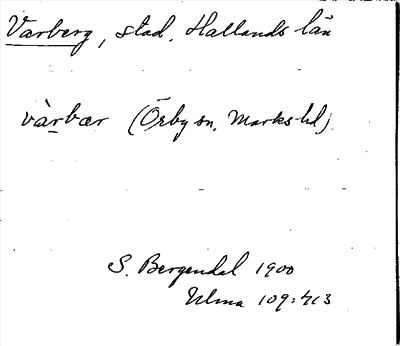 Varberg, stad, Hallands län
vàrbær (Örby sn, Marks hd)
S. Bergendal 1900
Ulma 109:413